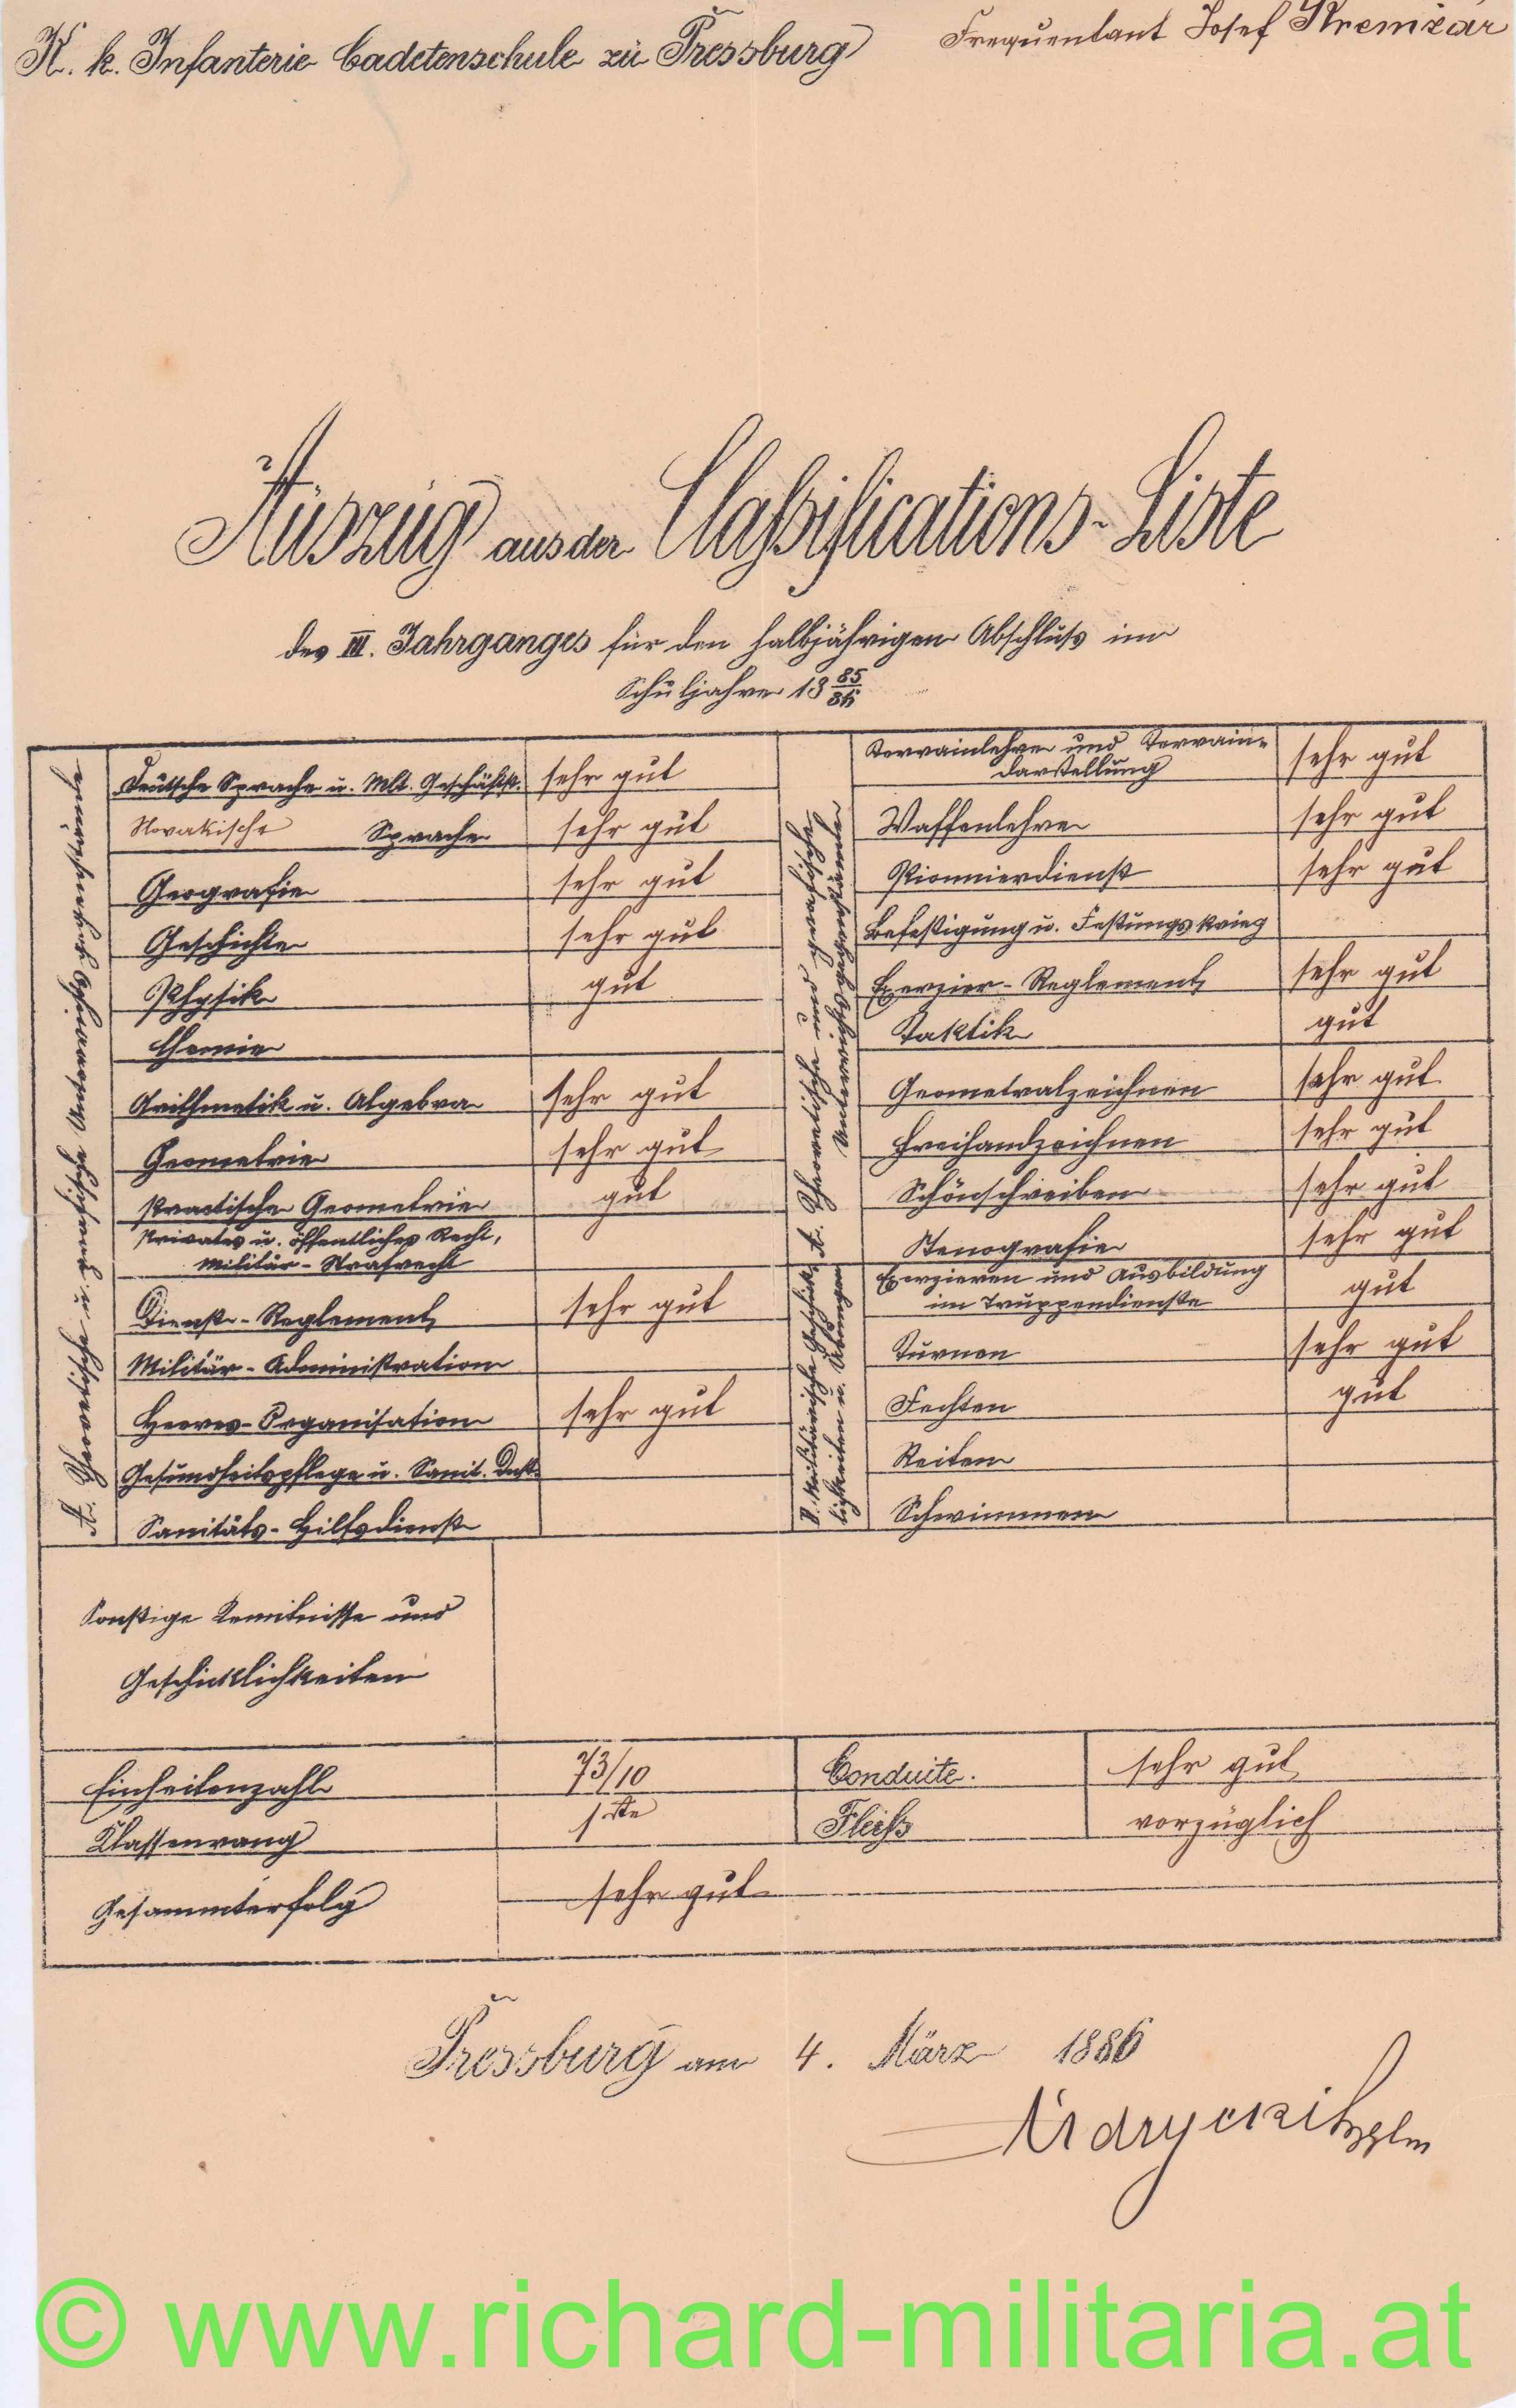 K. k. Infanterie Cadetenschule zu Pressburg
Frequentant Josef Kremžar
Auszug aus der Classifications-Liste
des III. Jahrganges für den halbjährigen Abschluss im
Schuljahre 18 85/86
A. Theoretische u. grafische Unterrichtsgegenstände
Deutsche Sprache u. Mlt. Geschäftst. sehr gut
Slovakische Sprache sehr gut
Geografie sehr gut
Geschichte sehr gut
Physik gut
Chemie
Arithmetik u. Algebra sehr gut
Geometrie sehr gut
Practische Geometrie gut
Privates u. öffentliches Recht,
Militär-Strafrecht
Dienst-Reglement sehr gut
Militär-Administration
Heeres-Organisation sehr gut
Gesundheitspflege u. Sanit. Dnst.
Sanitäts-Hilfsdienst
A. Theoretische und grafische
Unterrichtsgegenstände
Terrainlehre und Terrain-
darstellung sehr gut
Waffenlehre sehr gut
Pionnierdienst sehr gut
Befestigung u. Festungskrieg
Exerzier-Reglement sehr gut
Taktik gut
Geometralzeichnen sehr gut
Freihandzeichnen sehr gut
Schönschreiben sehr gut
Stenografie sehr gut
B. Militärische Geschick-
lichkeiten u. Übungen
Exerzieren und Ausbildung
im Truppendienste gut
Turnen sehr gut
Fechten gut
Reiten
Schwimmen
Sonstige Kenntnisse und
Geschicklichkeiten
Einheitenzahl 73/10 Conduite. sehr gut
Klassenrang 1.te Fleiß vorzüglich
Gesammterfolg sehr gut
Pressburg am 4. März 1886
© www.richard-militaria.at